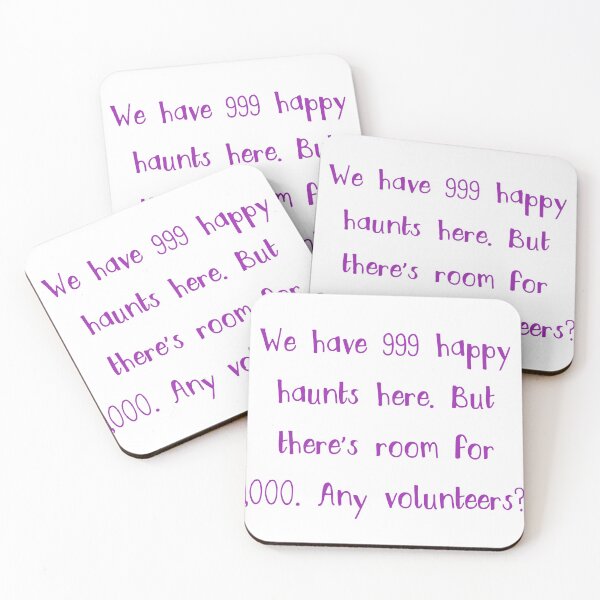 We have 999 happy
haunts here. Bu
room f
We have 999 happy
haunts here. But
there's room for
eers?
We have 999 happy
haunts here. But
there's room for
,000. Any vol
We have 999 happy
haunts here. But
there's room for
,000. Any volunteers?